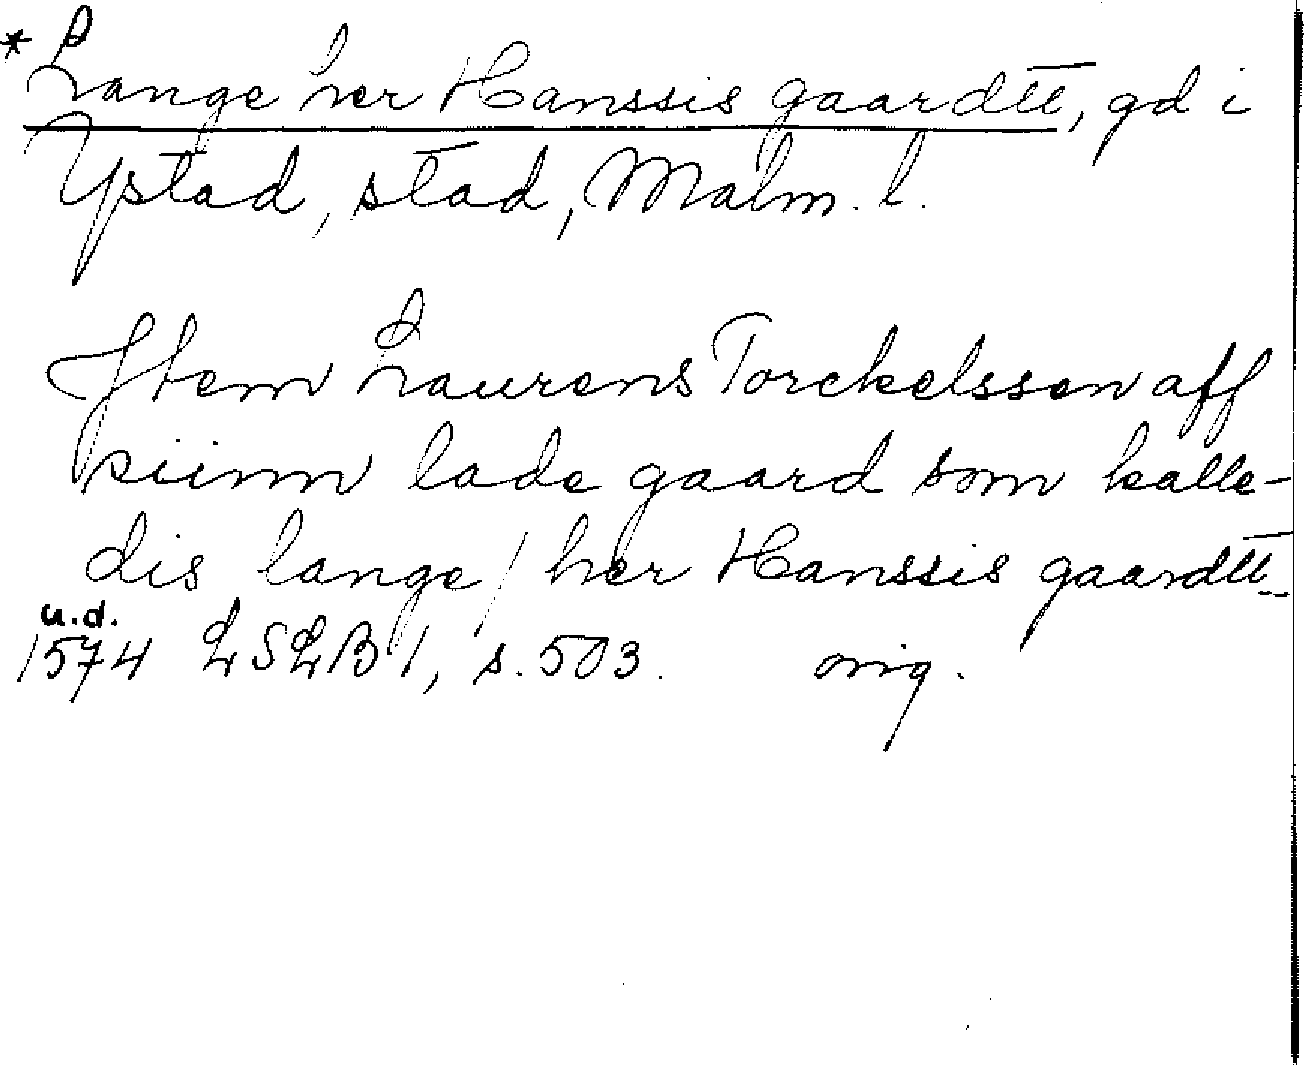 * Lange her Hanssis gaardtt, gd i
Ystad, stad, Malm. l.
Jtem Laurens Torckelssen aff
siinn lade gaard som kalle-
dis lange / her Hanssis gaardtt
u.d.
1574 LSLB 1, s. 503. orig.